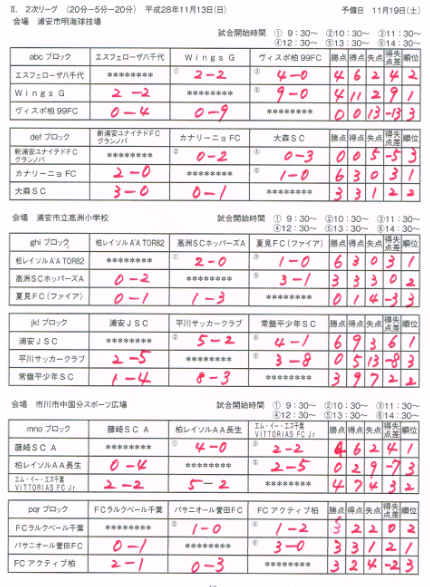 II. 2次リーグ (20分ー5分ー20分) 平成28年11月13日(日) 予備日 11月19日(土)
会場 浦安市明海球技場 試合開始時間 ① 9:30～ ②10:30～ ③11:30～
④12:30～ ⑤13:30～ ⑥14:30～
abc ブロック エスフェローザ八千代 Wings G ヴィスポ柏99FC 勝点 得点 失点 得失点差 順位
エスフェローザ八千代 ******** ① 2-2 ③ 4-0 4 6 2 4 2
Wings G 2-2 ******** ⑤ 9-0 4 11 2 9 1
ヴィスポ柏99FC 0-4 0-9 ******** 0 0 13 -13 3
def ブロック 新浦安ユナイテドFCグランノバ カナリーニョFC 大森SC 勝点 得点 失点 得失点差 順位
新浦安ユナイテドFCグランノバ ******** ② 0-2 ④ 0-3 0 0 5 -5 3
カナリーニョFC 2-0 ******** ⑥ 1-0 6 3 0 3 1
大森SC 3-0 0-1 ******** 3 3 1 2 2
会場 浦安市立高洲小学校 試合開始時間 ① 9:30～ ②10:30～ ③11:30～
④12:30～ ⑤13:30～ ⑥14:30～
ghi ブロック 柏レイソルA'A'TOR82 高洲SCホッパーズA 夏見FC(ファイア) 勝点 得点 失点 得失点差 順位
柏レイソルA'A'TOR82 ******** ① 2-0 ③ 1-0 6 3 0 3 1
高洲SCホッパーズA 0-2 ******** ⑤ 3-1 3 3 3 0 2
夏見FC(ファイア) 0-1 1-3 ******** 0 1 4 -3 3
jkl ブロック 浦安JSC 平川サッカークラブ 常盤平少年SC 勝点 得点 失点 得失点差 順位
浦安JSC ******** ② 5-2 ④ 4-1 6 9 3 6 1
平川サッカークラブ 2-5 ******** ⑥ 3-8 0 5 13 -8 3
常盤平少年SC 1-4 8-3 ******** 3 9 7 2 2
会場 市川市中国分スポーツ広場 試合開始時間 ① 9:30～ ②10:30～ ③11:30～
④12:30～ ⑤13:30～ ⑥14:30～
mno ブロック 藤崎SC A 柏レイソルAA長生 エム・イー・エス千葉VITTORIAS FC Jr 勝点 得点 失点 得失点差 順位
藤崎SC A ******** ① 4-0 ③ 2-2 4 6 2 4 1
柏レイソルAA長生 0-4 ******** ⑤ 2-5 0 2 9 -7 3
エム・イー・エス千葉VITTORIAS FC Jr 2-2 5-2 ******** 4 7 4 3 2
pqr ブロック FCラルクベール千葉 パサニオール誉田FC FCアクティブ柏 勝点 得点 失点 得失点差 順位
FCラルクベール千葉 ******** ② 1-0 ④ 1-2 3 2 2 0 2
パサニオール誉田FC 0-1 ******** ⑥ 3-0 3 3 1 2 1
FCアクティブ柏 2-1 0-3 ******** 3 2 4 -2 3